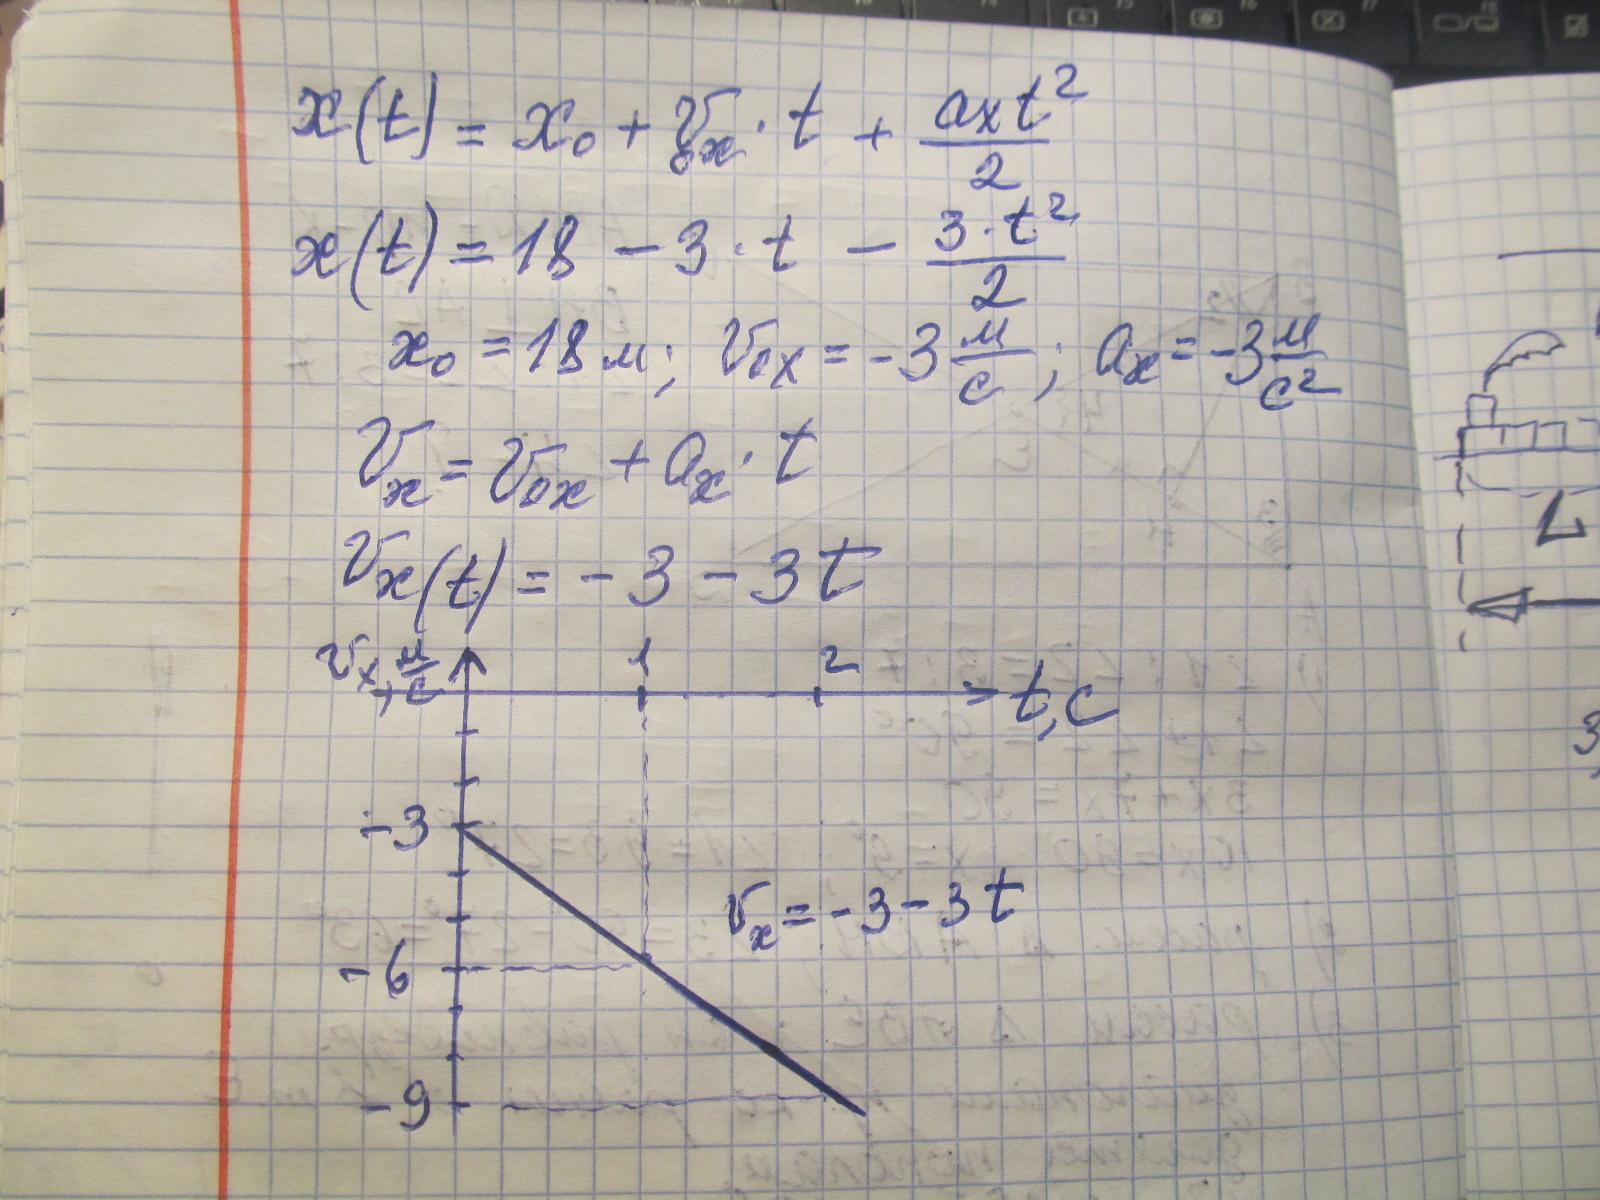 x(t) = x₀ + v₀ₓ · t + aₓt²/2
x(t) = 18 - 3 · t - 3·t²/2
x₀ = 18 м; v₀ₓ = -3 м/с; aₓ = -3 м/с²
vₓ = v₀ₓ + aₓ · t
vₓ(t) = -3 - 3t
vₓ, м/с
1 2
t, с
-3
vₓ = -3 - 3t
-6
-9
L